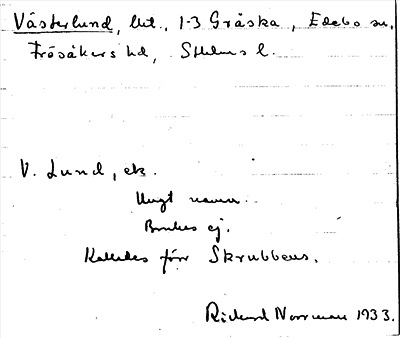 Västerlund, lht., 1-3 Gråska, Edebo sn,
Frösåkers hd, Sthlms l.
V. Lund, ek.
Ungt namn.
Brukes ej.
Kallades förr Skrubbens.
Rickard Norrman 1933.